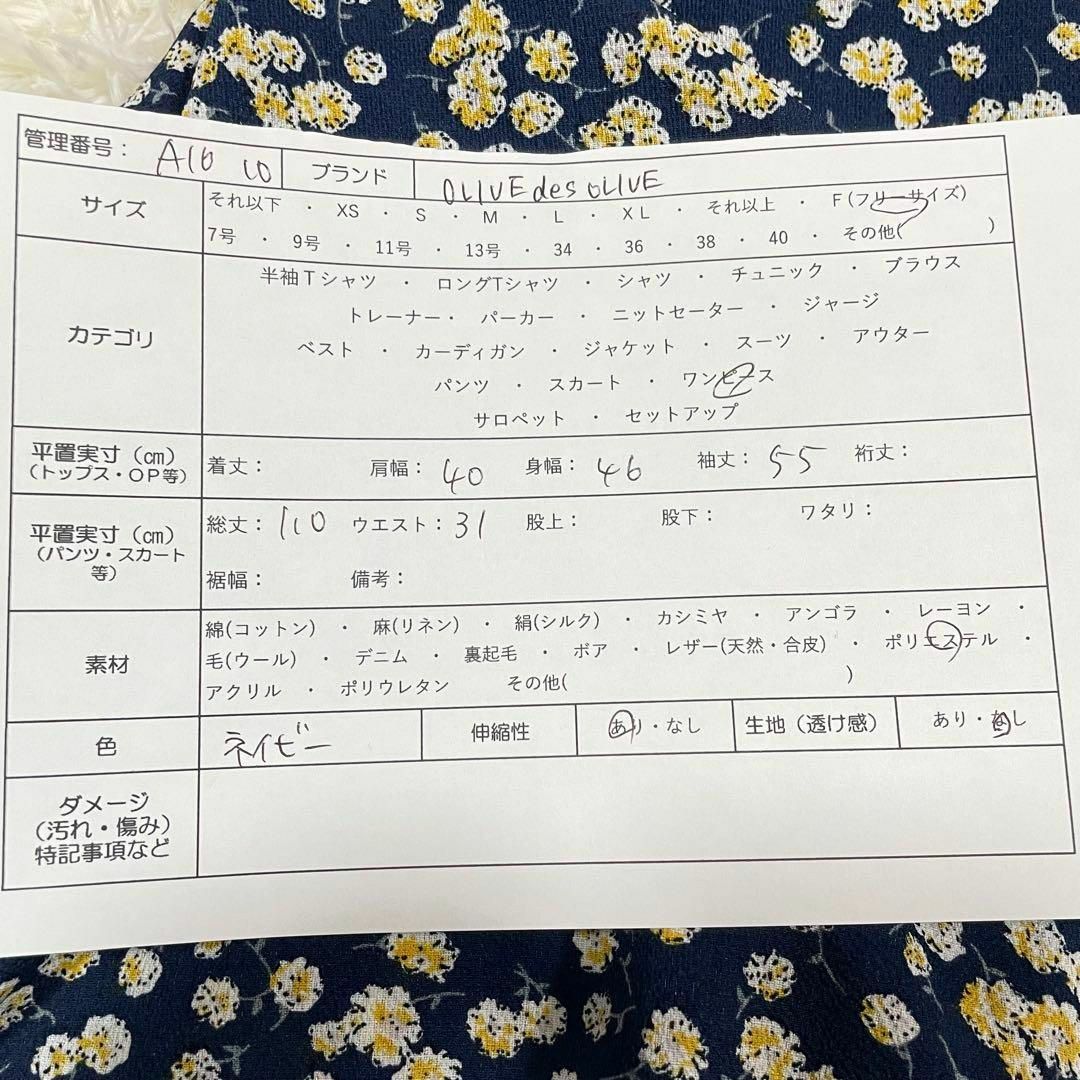 管理番号： A10 10 ブランド OLIVE des OLIVE
サイズ それ以下 ・ XS ・ S ・ M ・ L ・ XL ・ それ以上 ・ F(フリーサイズ)
7号 ・ 9号 ・ 11号 ・ 13号 ・ 34 ・ 36 ・ 38 ・ 40 ・ その他( )
カテゴリ
半袖Tシャツ ・ ロングTシャツ ・ シャツ ・ チュニック ・ ブラウス
トレーナー・ パーカー ・ ニットセーター ・ ジャージ
ベスト ・ カーディガン ・ ジャケット ・ スーツ ・ アウター
パンツ ・ スカート ・ ワンピース
サロペット ・ セットアップ
平置実寸（㎝）
（トップス・OP等） 着丈： 肩幅： 40 身幅： 46 袖丈： 55 裄丈：
平置実寸（㎝）
（パンツ・スカート
等）
総丈： 110 ウエスト： 31 股上： 股下： ワタリ：
裾幅： 備考：
素材
綿(コットン) ・ 麻(リネン) ・ 絹(シルク) ・ カシミヤ ・ アンゴラ ・ レーヨン ・
毛(ウール) ・ デニム ・ 裏起毛 ・ ボア ・ レザー(天然・合皮) ・ ポリエステル ・
アクリル ・ ポリウレタン その他( )
色 ネイビー 伸縮性 あり・なし 生地（透け感） あり・なし
ダメージ
（汚れ・傷み）
特記事項など